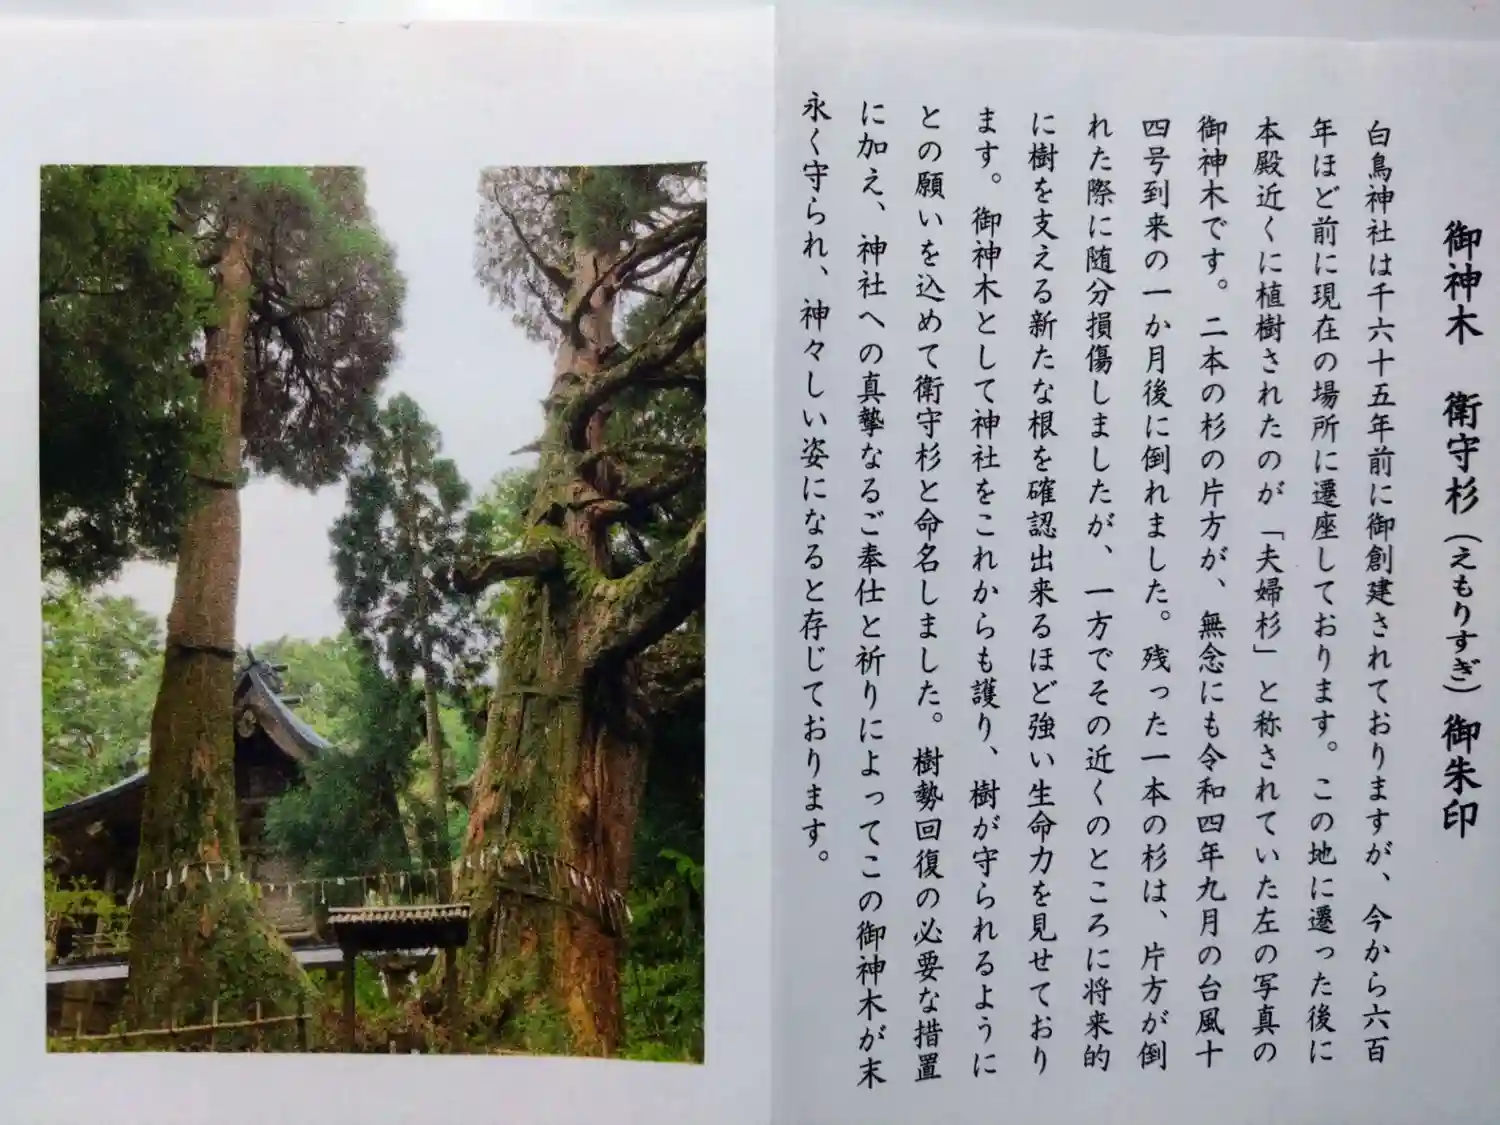 御神木　衛守杉（えもりすぎ）御朱印
白鳥神社は千六十五年前に御創建されておりますが、今から六百
年ほど前に現在の場所に遷座しております。この地に遷った後に
本殿近くに植樹されたのが「夫婦杉」と称されていた左の写真の
御神木です。二本の杉の片方が、無念にも令和四年九月の台風十
四号到来の一か月後に倒れました。残った一本の杉は、片方が倒
れた際に随分損傷しましたが、一方でその近くのところに将来的
に樹を支える新たな根を確認出来るほど強い生命力を見せており
ます。御神木として神社をこれからも護り、樹が守られるように
との願いを込めて衛守杉と命名しました。樹勢回復の必要な措置
に加え、神社への真摯なるご奉仕と祈りによってこの御神木が末
永く守られ、神々しい姿になると存じております。